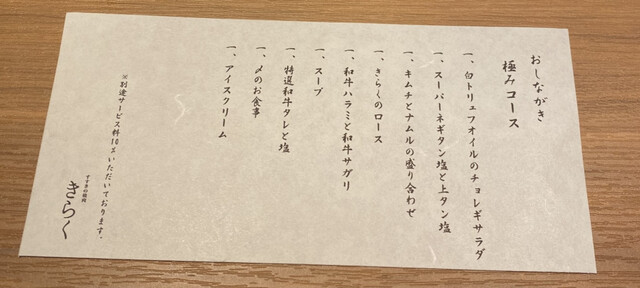 おしながき
極みコース
一、白トリュフオイルのチョレギサラダ
一、スーパーネギタン塩と上タン塩
一、キムチとナムルの盛り合わせ
一、きらくのロース
一、和牛ハラミと和牛サガリ
一、スープ
一、特選和牛タレと塩
一、〆のお食事
一、アイスクリーム
※別途サービス料10%いただいております。
きらく